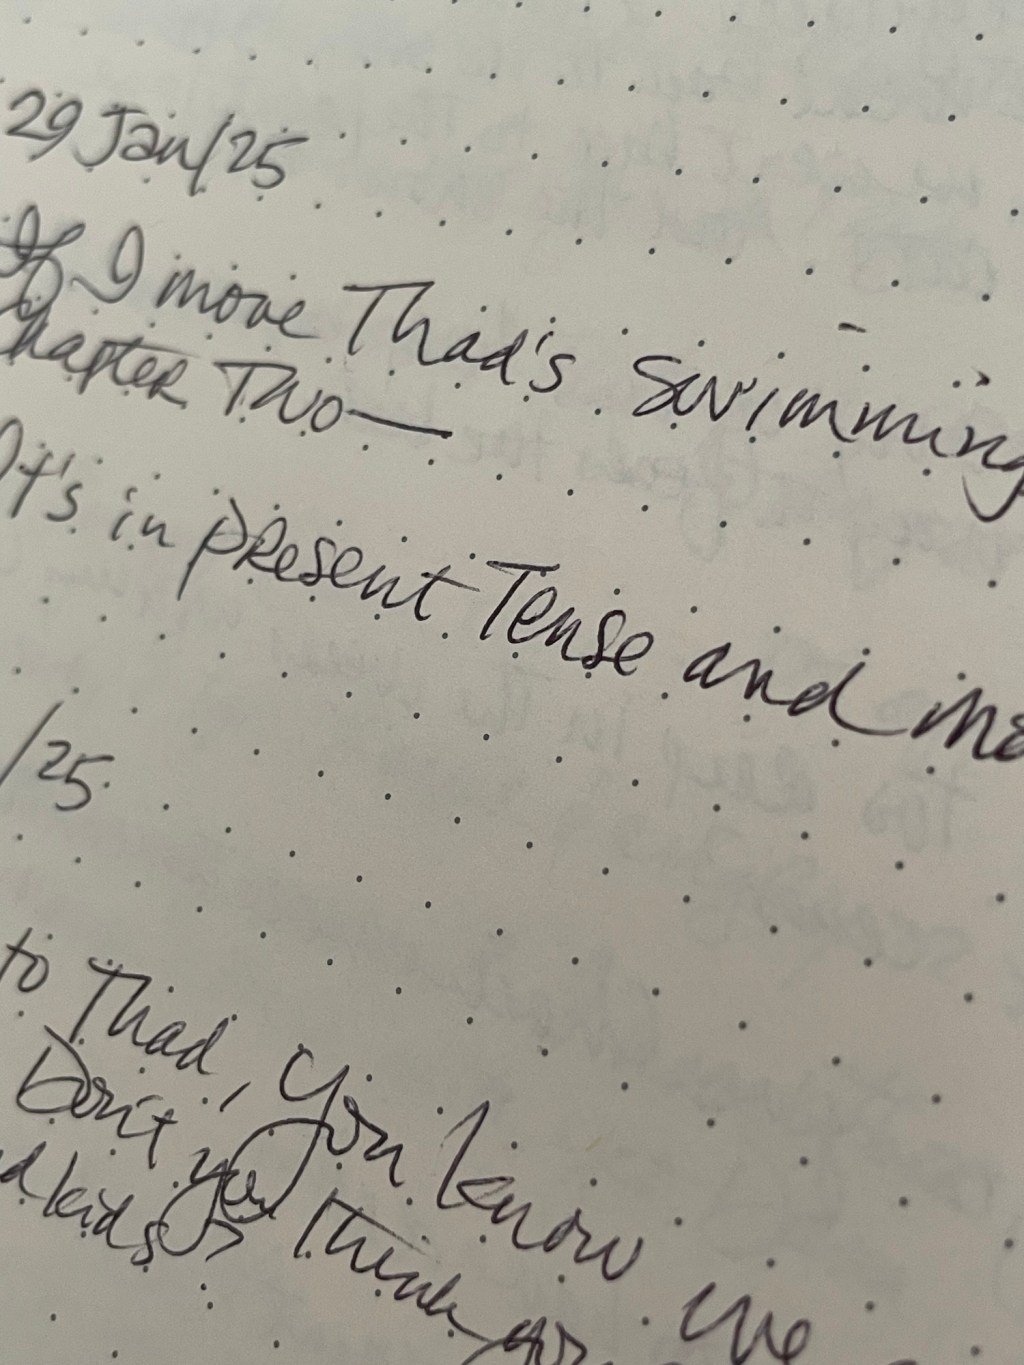 29 Jan/25
If I move Thad's Swimming
Chapter Two—
It's in present Tense and
/25
to Thad, you know we
Don't you think
kids